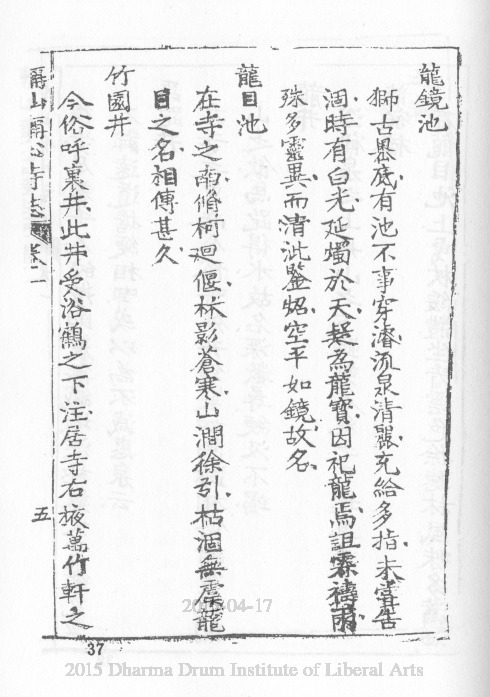 龍鏡池
獅古嵒底有池不事穿濬泉清充給多指未嘗告
涸時有白光延燭於天疑為龍寶因祀龍焉詛霖禱雨
殊多靈異而清泚鑒炤空平如鏡故名
龍目池
在寺之南脩柯廻偃林影蒼寒山澗徐引枯涸無虞龍
目之名相傳甚久
竹園井
今俗呼裏井此井受浴鶴之下注居寺右掖萬竹軒之
寺志卷二
五
37
04-17
2015 Dharma Drum Institute of Liberal Arts